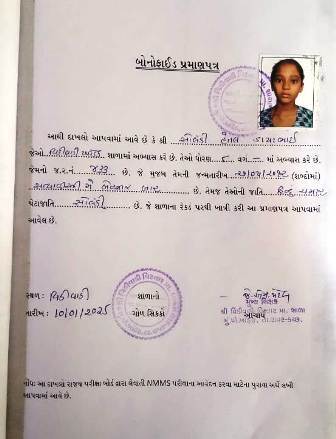 બોનોફાઈડ પ્રમાણપત્ર
આથી દાખલો આપવામાં આવે છે કે શ્રી સોલંકી
જેઓ શાળામાં અભ્યાસ કરે છે. તેઓ ધોરણ ૮ વર્ગ - માં અભ્યાસ કરે છે.
જેમનો જ.ર.નં. ૪૩૩ છે. જે મુજબ તેમની જન્મતારીખ (શબ્દોમાં)
બે હજાર બાર છે. તેમજ તેઓની જાતિ હિન્દુ
પેટાજાતિ સોલંકી છે. જે શાળાના રેકર્ડ પરથી ખાત્રી કરી આ પ્રમાણપત્ર આપવામાં
આવેલ છે.
સ્થળ : વિડીવાડી શાળાનો
તારીખ : 10/01/2025 ગોળ સિક્કો
મુખ્ય શિક્ષક
આચાર્ય
નોંધ: આ દાખલો રાજ્ય પરીક્ષા બોર્ડ દ્વારા લેવાતી NMMS પરીક્ષાના આવેદન કરવા માટેના પુરાવા અર્થે લખી
આપવામાં આવે છે.